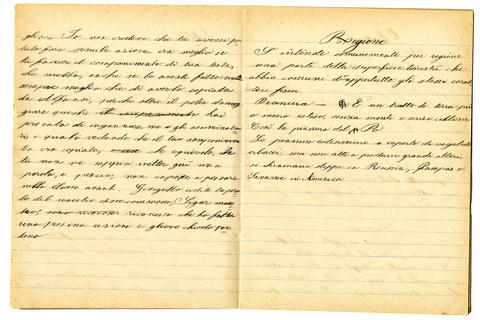 glior. Io non credevo che tu avessi po-
tuto fare simile azione, era meglio se
tu facevi il componimento di tua testa,
che anche se lo avesti fatto male
sempre meglio che di averlo copiato
da Alfonso, perchè oltre il poter danneg
giare questi hai
provato di ingannare, me o gli esaminatori
e quali vedendo che il tuo componimen
to era copiato, che equivale, Se
tu non ne sapevi nella qui una
parola e pensi, non sapere passare
nella classe avant. Giorgetto udite la pa
role del maestro disse commosso, Signor maes
tro, riconosco che ho fatto
una pessima azione e gliene chiedo per-
dono.
Regione
S'intende comunemente per regione
una parte della superficie terrestre che
abbia comuni dappertutto gli stessi carat
teri fisici
Pianura – È un tratto di terra più
o meno esteso, senza monti e senza colline
Così la pianura del Po.
Le pianure estesissime e coperte da vegetali
erbacei, ma non atte a produrre grandi alberi,
si chiamano steppe in Russia, Pampas o
Savane in America